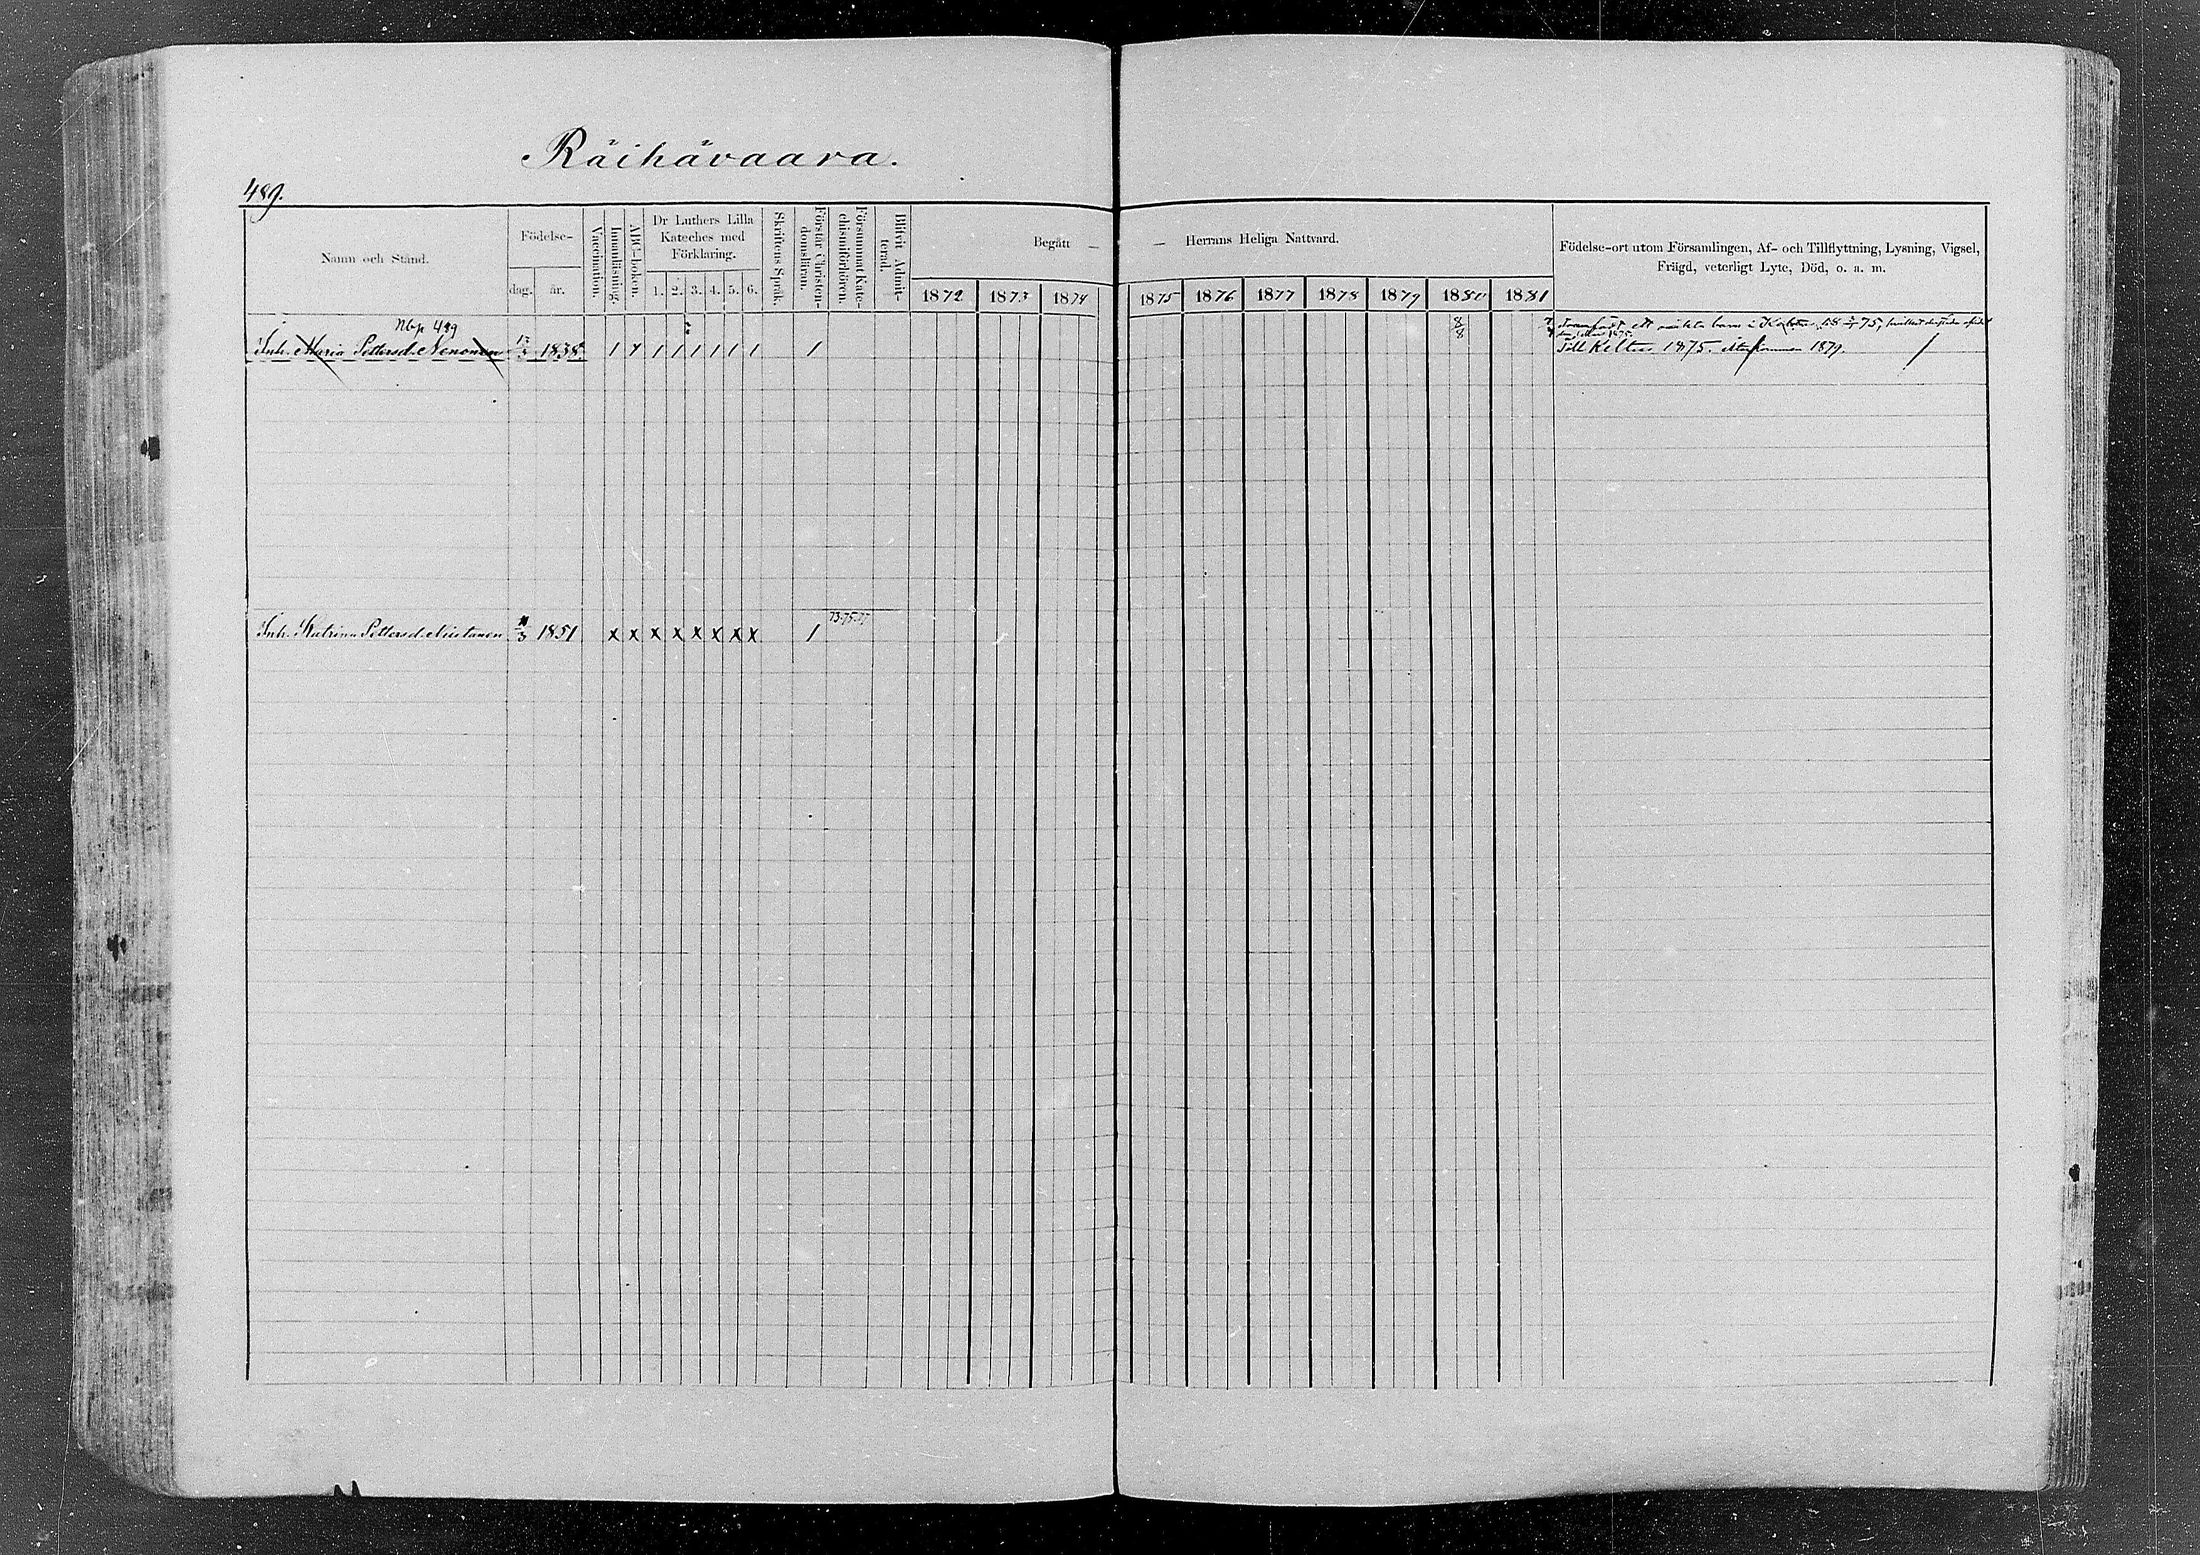 Räihävaara.
489.
Namn och Stånd.
Födelse-
dag.
år.
Vaccination.
Innanläsning.
ABC-boken.
Dr Luthers Lilla
Kateches med
Förklaring.
1. 2. 3. 4. 5. 6.
Skriftens Språk.
Förstår Christen-
domsläran.
Försummat Kate-
chismiförhören.
Blifvit Admit-
terad.
Begått — — Herrans Heliga Nattvard.
1872 1873 1874 1875 1876 1877 1878 1879 1880 1881
Födelse-ort utom Församlingen, Af- och Tillflyttning, Lysning, Vigsel,
Frägd, veterligt Lyte, Död, o. a. m.
Nbp 489
Inh. Maria Pettersd. Nenonen 1838 1 1 1 1 1 1 1 1 1
8
8
Framfödt ett oäkta barn i 75,
Till Keltis 1875. återkommen 1879.
Inh. Katrina Pettersd. 1851 x x x x x x x x 1 73.75.77